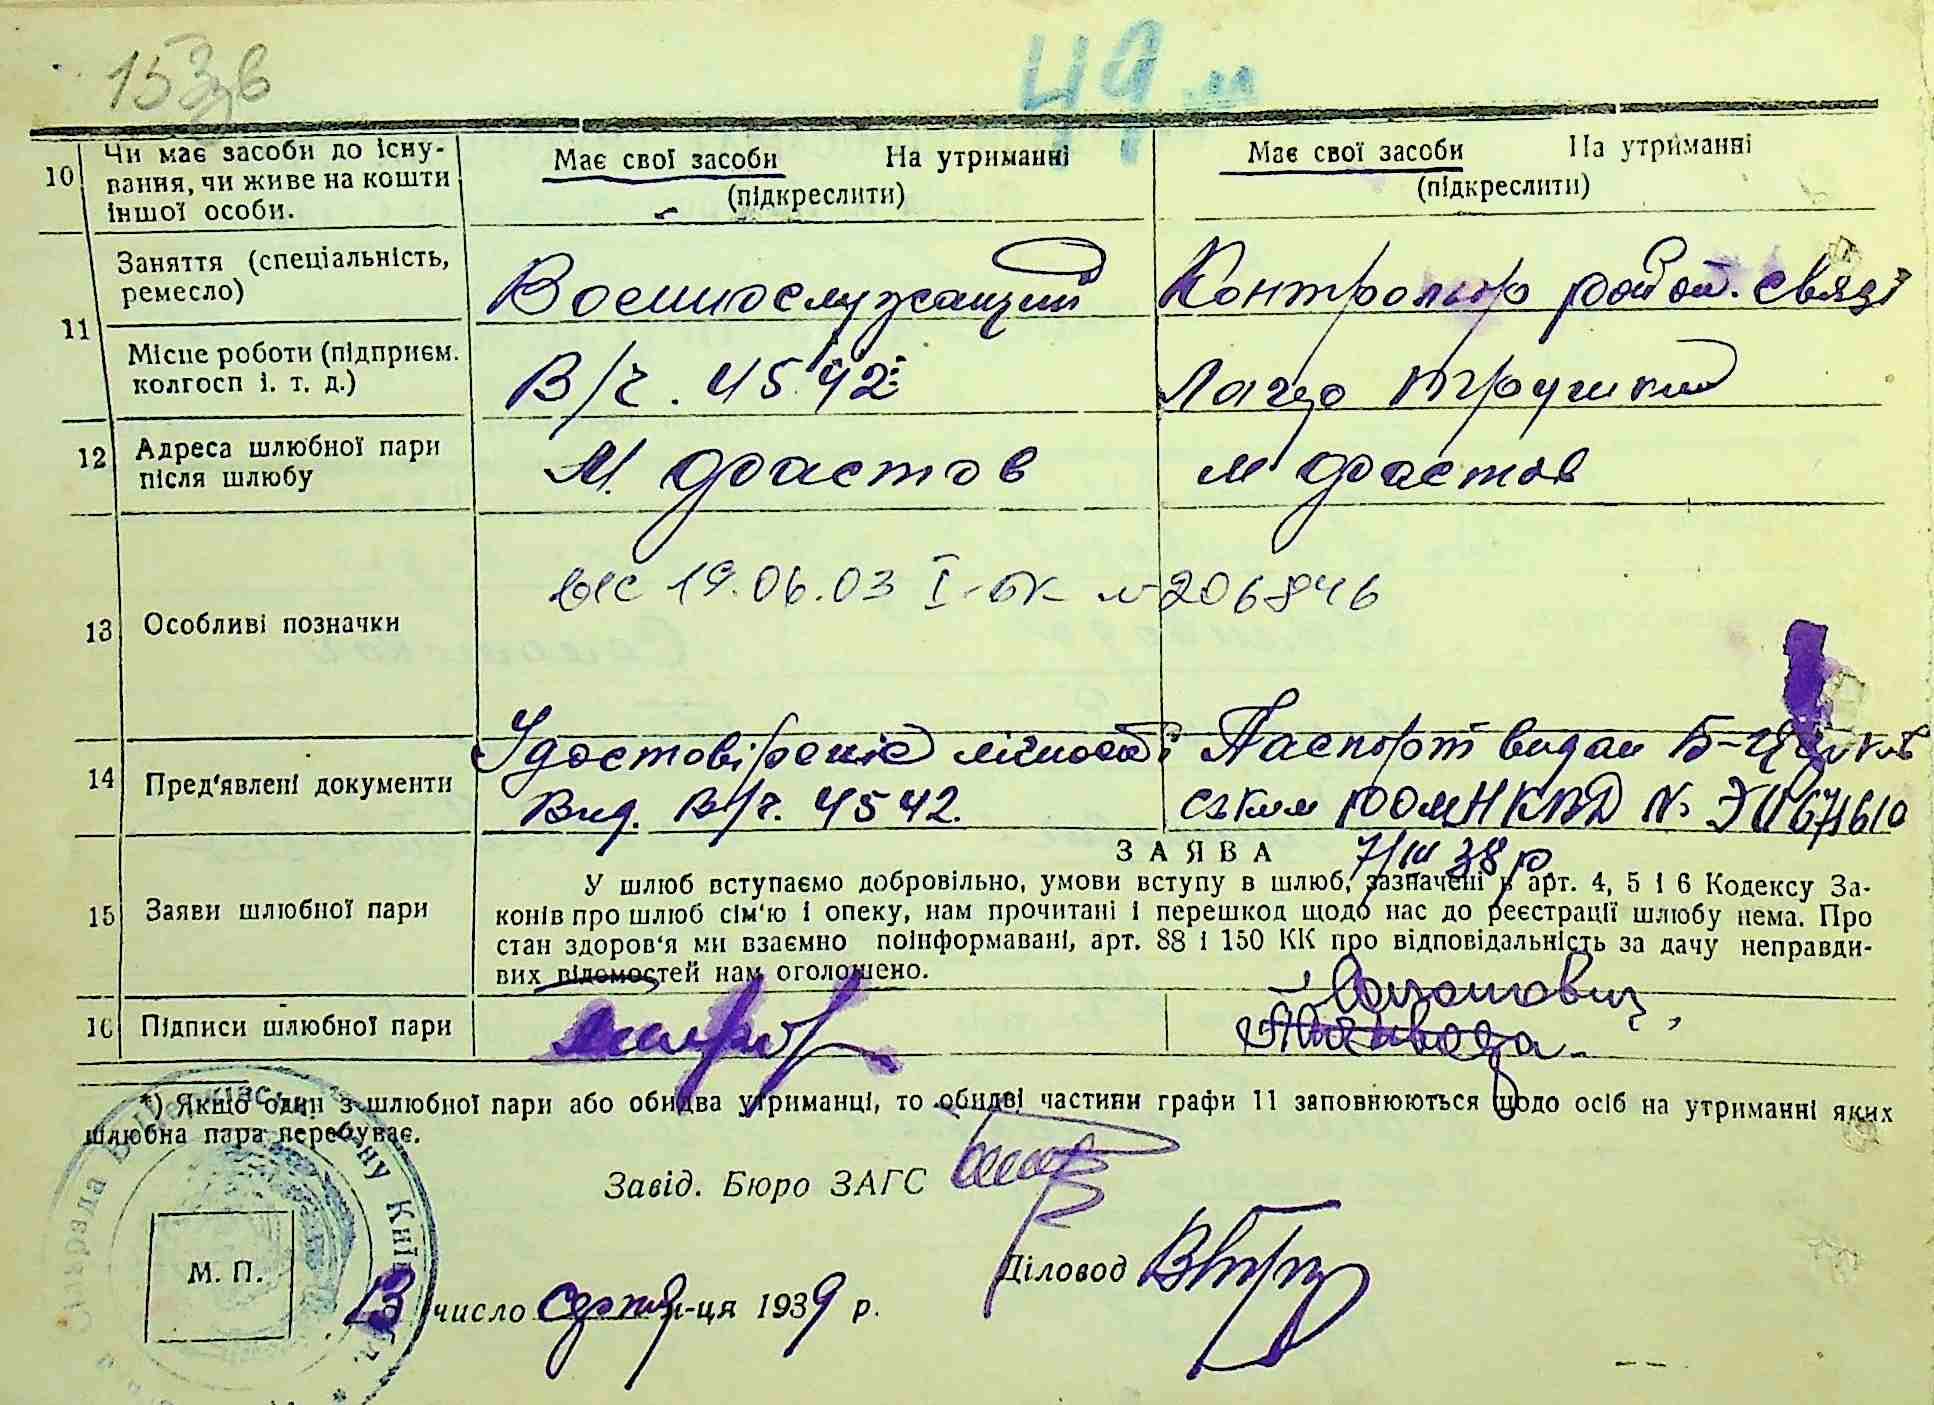 153зв
49
10 Чи має засоби до існу-
вання, чи живе на кошти
іншої особи.
Має свої засоби На утриманні
(підкреслити)
Має свої засоби На утриманні
(підкреслити)
11 Заняття (спеціальність,
ремесло)
Военнослужащий
Контрольор район. связі
Місце роботи (підприєм.
колгосп і. т. д.)
В/ч. 4542
12 Адреса шлюбної пари
після шлюбу
М. Фастов
м Фастов
13 Особливі позначки
19.06.03 І-БК № 206846
14 Пред'явлені документи
Удостовірение лічності
Вид. В/ч. 4542.
Паспорт видан Б-Церков
ським РОМНКВД №
7/III 38 р.
15 Заяви шлюбної пари
ЗАЯВА
У шлюб вступаємо добровільно, умови вступу в шлюб, зазначені в арт. 4, 5 і 6 Кодексу За-
конів про шлюб сім'ю і опеку, нам прочитані і перешкод щодо нас до реєстрації шлюбу нема. Про
стан здоров'я ми взаємно поінформавані, арт. 88 і 150 КК про відповідальність за дачу неправди-
вих відомостей нам оголошено.
16 Підписи шлюбної пари
*) Якщо один з шлюбної пари або обидва утриманці, то обидві частини графи 11 заповнюються щодо осіб на утриманні яких
шлюбна пара перебуває.
Завід. Бюро ЗАГС
Діловод
М. П.
13 число серпня м-ця 1939 р.